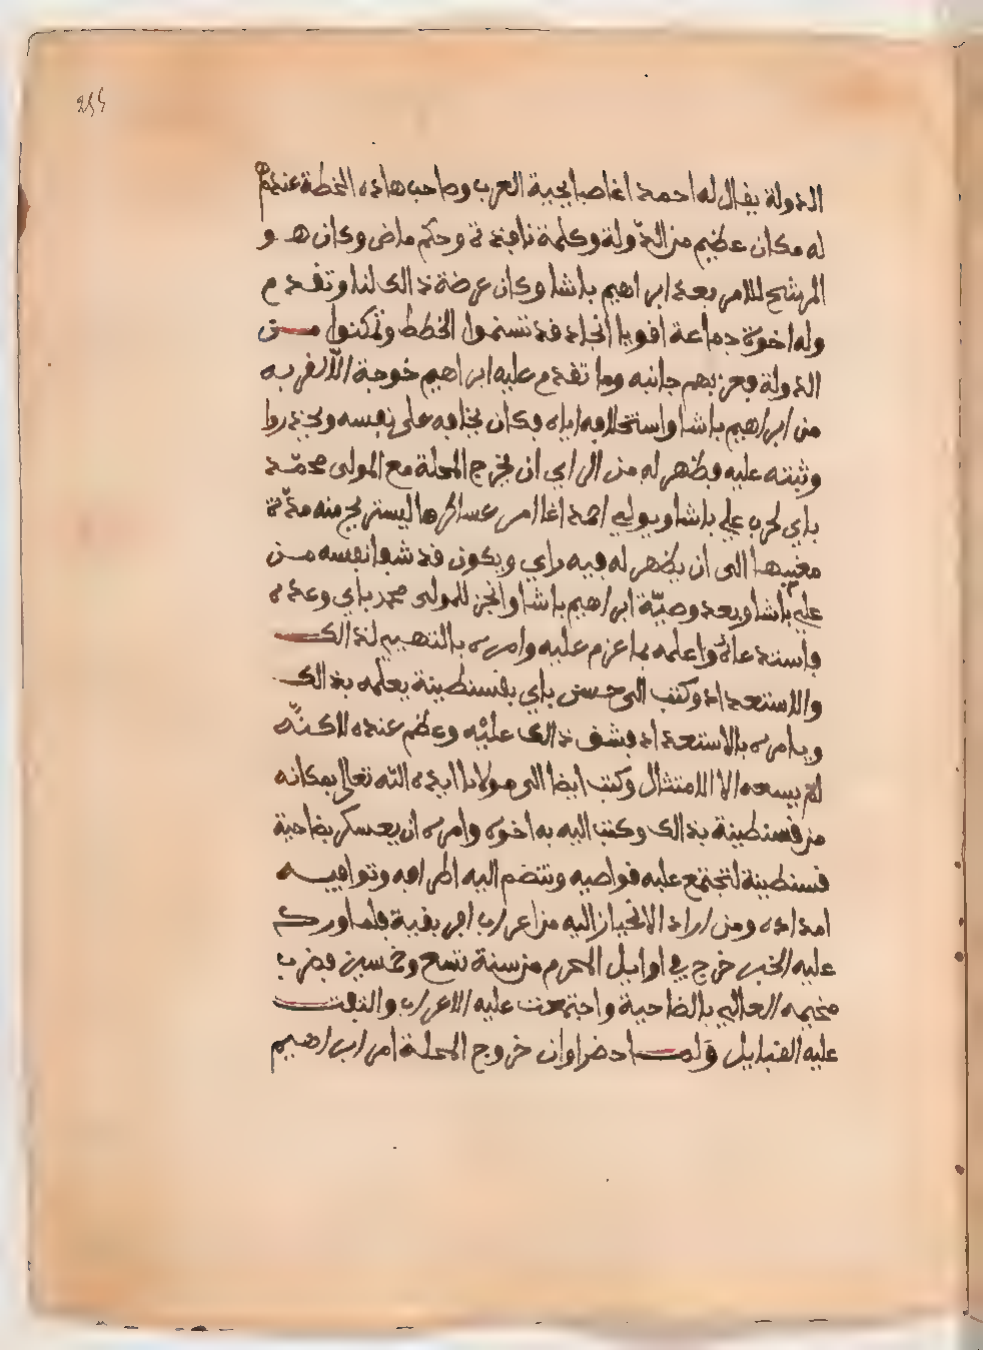 255
الدولة يقال له احمد اغا صبايحية العرب وصاحب هاذه الخطة عندهم
له مكان عظيم من الدّولة وكلمة نافذة وحكم ماض وكان هو
المرشح للامر بعد ابراهيم باشا وكان عرضة ذالك لنا وتقدم
وله اخوة جماعة اقويا انجاد قد تسنموا الخطط وتمكنوا من
الدولة فعز بهم جانبه وما تقدم عليه ابراهيم خوجة الا لقربه
من ابراهيم باشا واستخلافه اياه فكان يخافه على نفسه ويحذر
وثبته عليه فظهر له من الراي ان يخرج المحلة مع المولى محمّد
باي لحرب علي باشا ويولي احمد اغا امر عساكرها ليستريح منه مدّة
مغيبها الى ان يظهر له فيه راي ويكون قد شفا نفسه من
علي باشا وبعد وصيّة ابراهيم باشا وانجز للمولى محمد باي وعده
فاستدعاه واعلمه بما عزم عليه وامره بالتهيي لذالك
والاستعداد وكتب الى حسن باي بقسنطينة يعلمه بذالك
ويامره بالاستعداد فشق ذالك عليْه وعظم عنده لاكنّه
لم يسعه الا الامتثال وكتب ايضا الى مولانا ايده الله تعالى بمكانه
من قسنطينة بذالك وكتب اليه به اخوه وامره ان يعسكر بضاحية
قسنطينة لتجتمع عليه قواصيه وتنضم اليه اطرافه وتوافيه
امداده ومن اراد الانحياز اليه من اعراب افريقية فلما ورد
عليه الخبر خرج في اوايل المحرم من سنة تسع وخمسين فضرب
مخيمه العالي بالضاحية واجتمعت عليه الاعراب والتفت
عليه القبايل ولما حضر اوان خروج المحلة امر ابراهيم